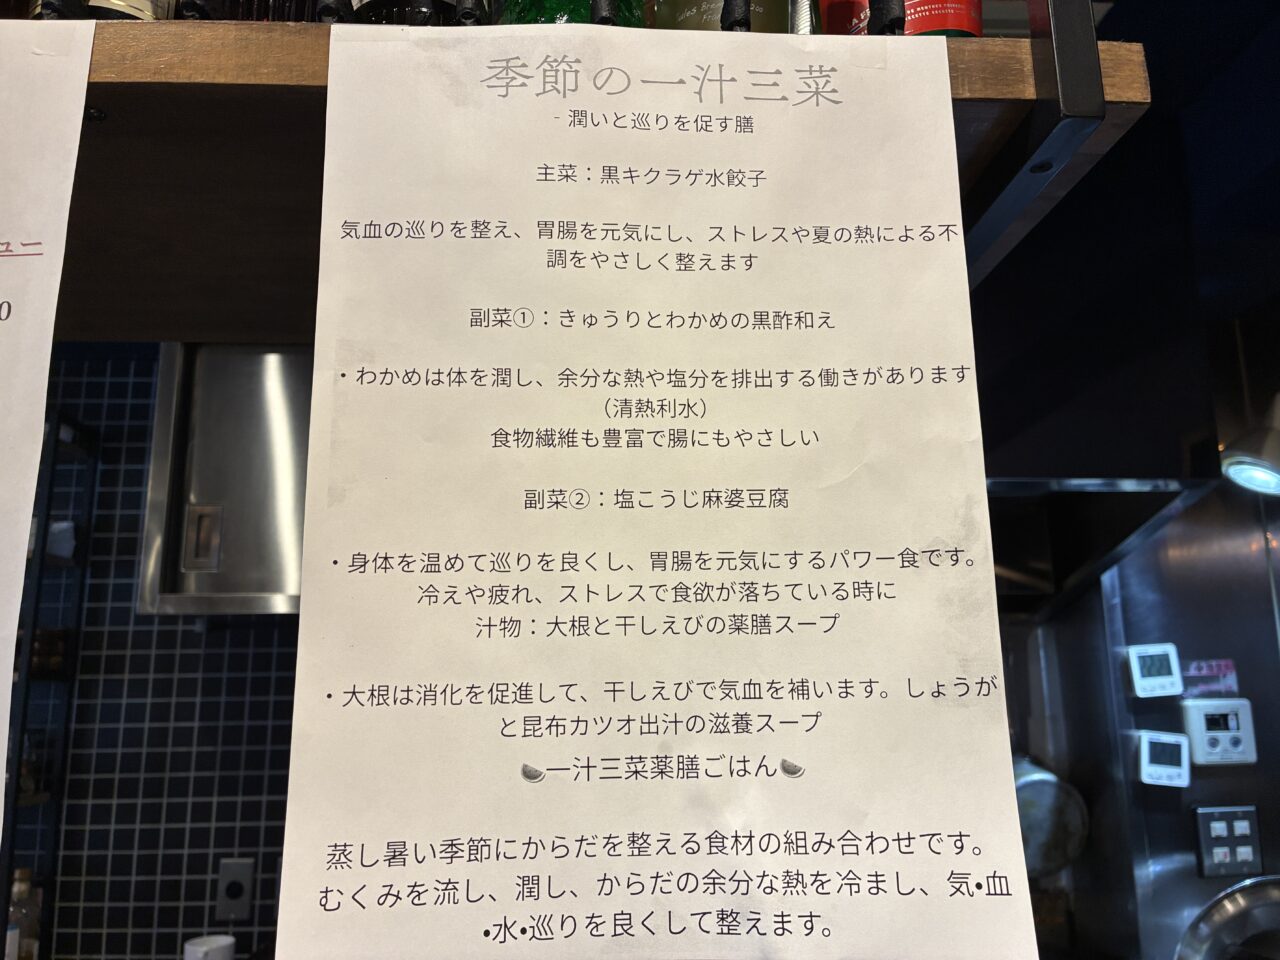 季節の一汁三菜
- 潤いと巡りを促す膳
主菜：黒キクラゲ水餃子
気血の巡りを整え、胃腸を元気にし、ストレスや夏の熱による不
調をやさしく整えます
副菜①：きゅうりとわかめの黒酢和え
・わかめは体を潤し、余分な熱や塩分を排出する働きがあります
（清熱利水）
食物繊維も豊富で腸にもやさしい
副菜②：塩こうじ麻婆豆腐
・身体を温めて巡りを良くし、胃腸を元気にするパワー食です。
冷えや疲れ、ストレスで食欲が落ちている時に
汁物：大根と干しえびの薬膳スープ
・大根は消化を促進して、干しえびで気血を補います。しょうが
と昆布カツオ出汁の滋養スープ
🍉一汁三菜薬膳ごはん🍉
蒸し暑い季節にからだを整える食材の組み合わせです。
むくみを流し、潤し、からだの余分な熱を冷まし、気•血
•水•巡りを良くして整えます。
ュー
0